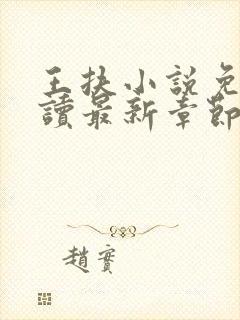 王扶小說免
讀最新章節
趙實